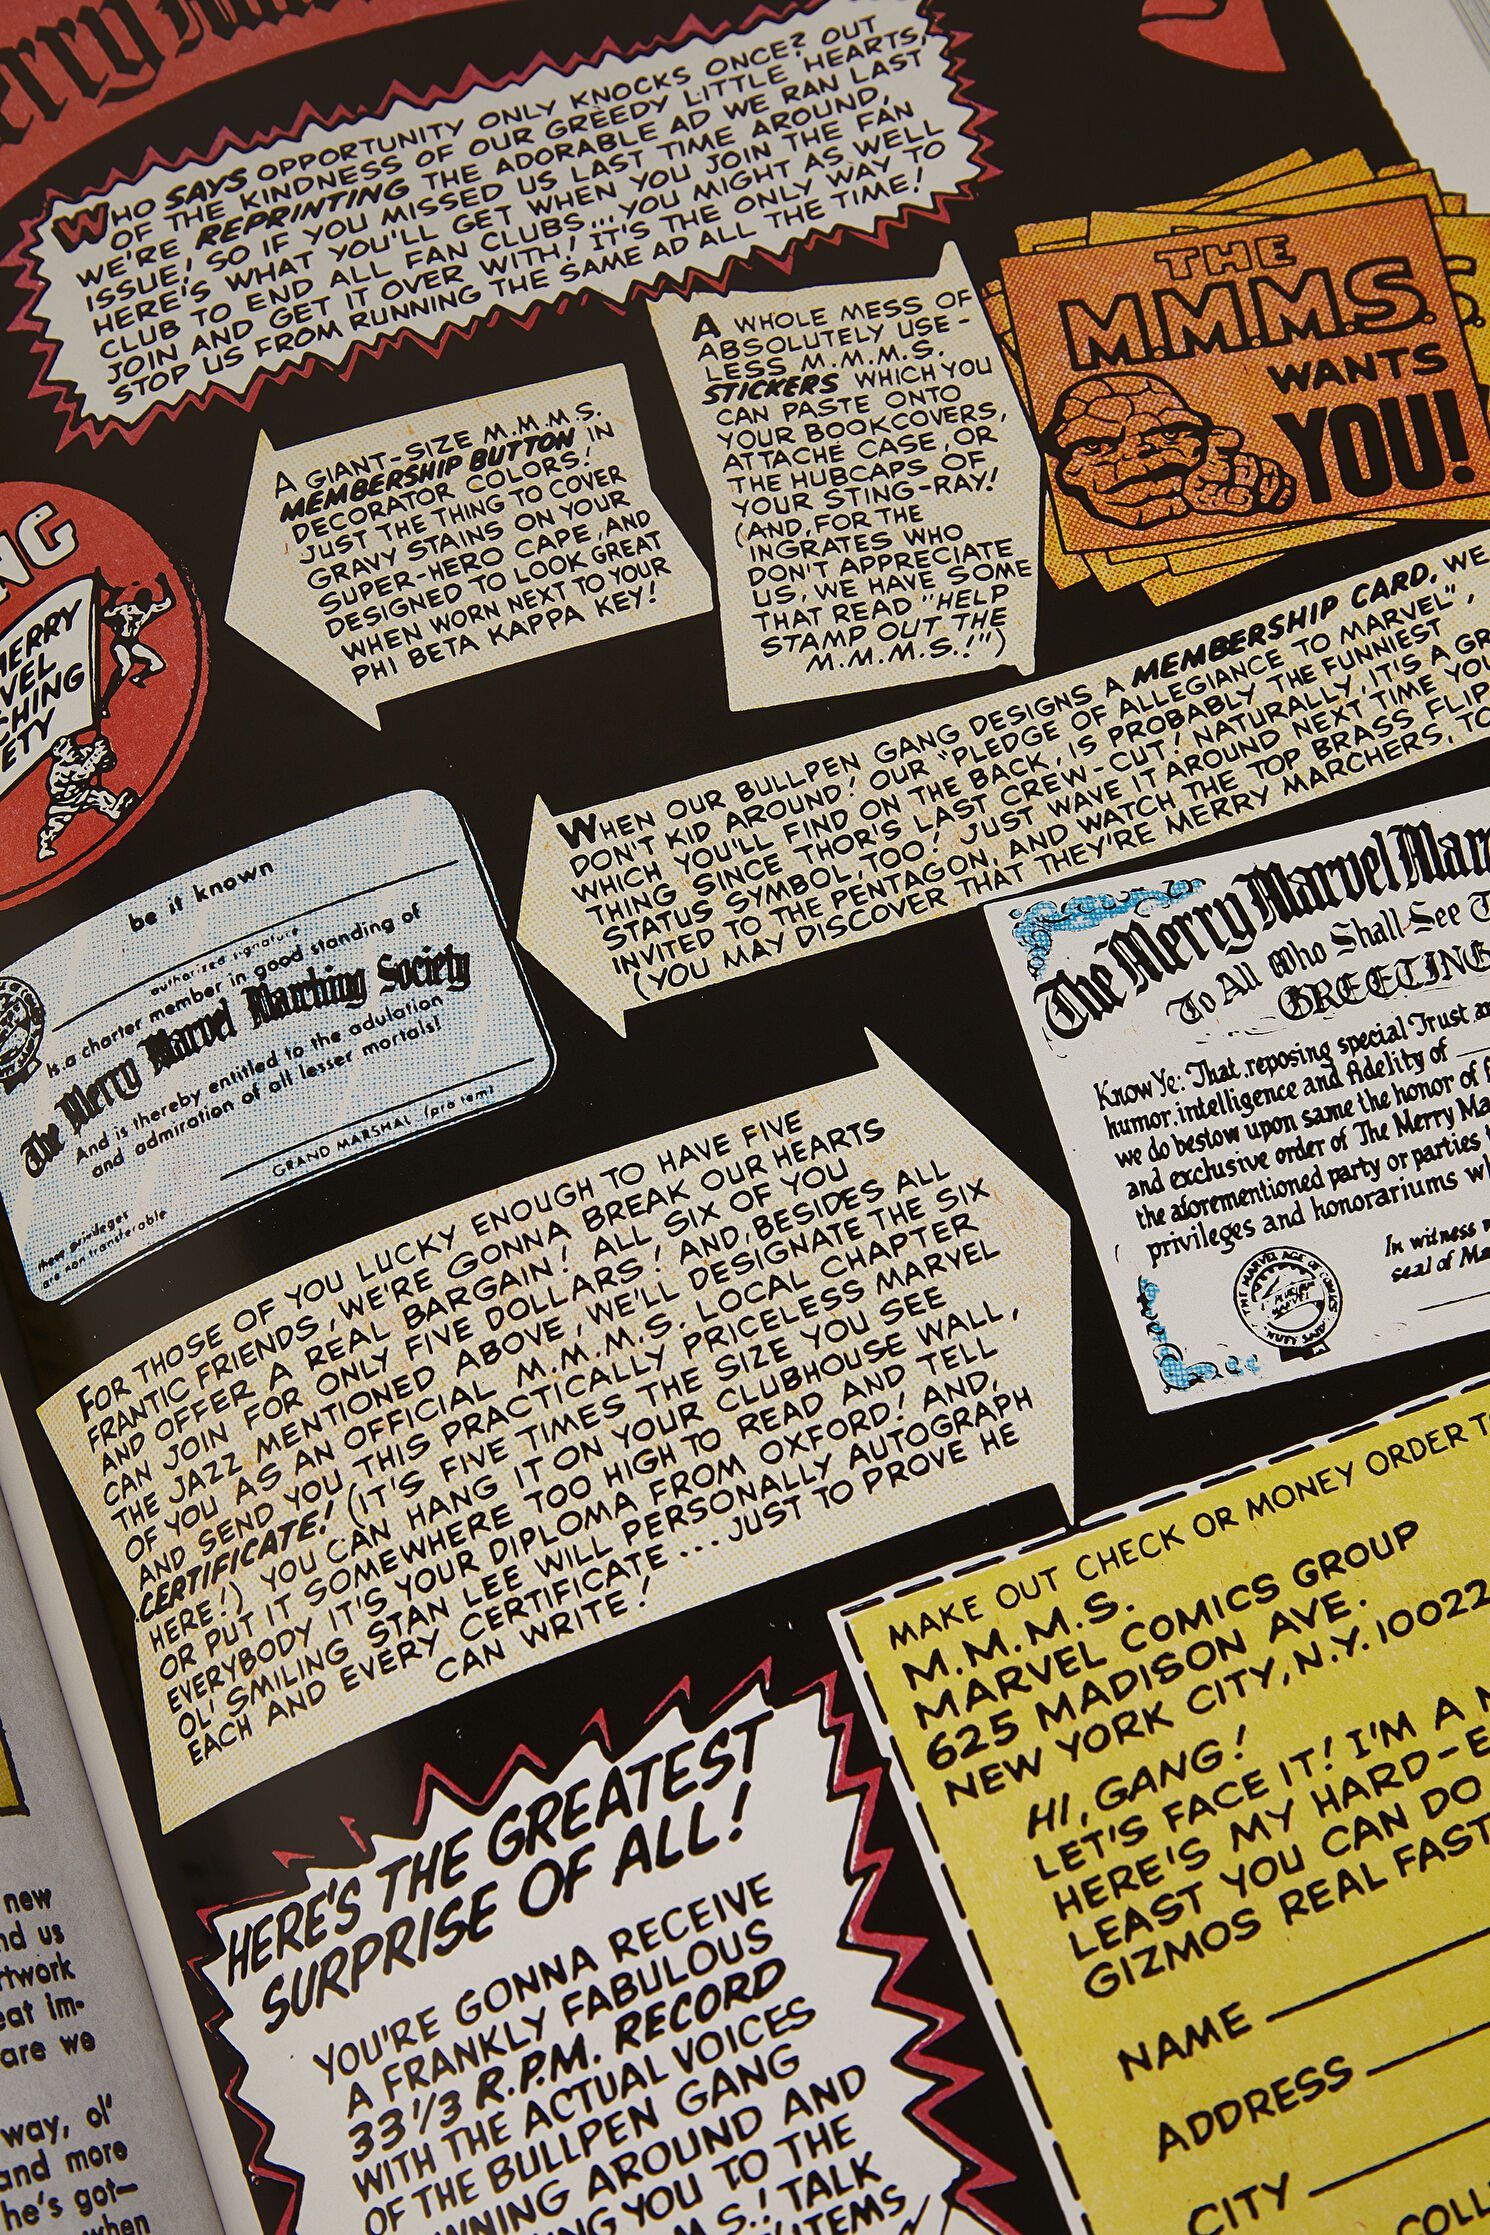 WHO SAYS OPPORTUNITY ONLY KNOCKS ONCE? OUT
OF THE KINDNESS OF OUR GREEDY LITTLE HEARTS,
WE'RE REPRINTING THE ADORABLE AD WE RAN LAST
ISSUE! SO IF YOU MISSED US LAST TIME AROUND,
HERE'S WHAT YOU'LL GET WHEN YOU JOIN THE FAN
CLUB TO END ALL FAN CLUBS... YOU MIGHT AS WELL
JOIN AND GET IT OVER WITH! IT'S THE ONLY WAY TO
STOP US FROM RUNNING THE SAME AD ALL THE TIME!
A GIANT-SIZE M.M.M.S.
MEMBERSHIP BUTTON IN
DECORATOR COLORS!
JUST THE THING TO COVER
GRAVY STAINS ON YOUR
SUPER-HERO CAPE, AND
DESIGNED TO LOOK GREAT
WHEN WORN NEXT TO YOUR
PHI BETA KAPPA KEY!
A WHOLE MESS OF
ABSOLUTELY USE-
LESS M.M.M.S.
STICKERS WHICH YOU
CAN PASTE ONTO
YOUR BOOKCOVERS,
ATTACHE CASE, OR
THE HUBCAPS OF
YOUR STING-RAY!
(AND, FOR THE
INGRATES WHO
DON'T APPRECIATE
US, WE HAVE SOME
THAT READ "HELP
STAMP OUT THE
M.M.M.S.!")
THE
M.M.M.S.
WANTS
YOU!
WHEN OUR BULLPEN GANG DESIGNS A MEMBERSHIP CARD, WE
DON'T KID AROUND! OUR "PLEDGE OF ALLEGIANCE TO MARVEL",
WHICH YOU'LL FIND ON THE BACK, IS PROBABLY THE FUNNIEST
THING SINCE THOR'S LAST CREW-CUT! NATURALLY, IT'S A GR
STATUS SYMBOL, TOO! JUST WAVE IT AROUND NEXT TIME YOU
INVITED TO THE PENTAGON, AND WATCH THE TOP BRASS FLIP
(YOU MAY DISCOVER THAT THEY'RE MERRY MARCHERS, TO
NG
MERRY
VEL
CHING
ETY
be it known
authorized signature
is a charter member in good standing of
The Merry Marvel Marching Society
And is thereby entitled to the adulation
and admiration of all lesser mortals!
GRAND MARSHAL (pro tem)
these privileges
are non transferable
The Merry Marvel Mar
To All Who Shall See T
GREETING
Know Ye: That reposing special Trust an
humor, intelligence and fidelity of
we do bestow upon same the honor of f
and exclusive order of The Merry Ma
the aforementioned party or parties t
privileges and honorariums wh
THE MARVEL AGE OF COMICS
'NUFF SAID
In witness w
seal of Ma
FOR THOSE OF YOU LUCKY ENOUGH TO HAVE FIVE
FRANTIC FRIENDS, WE'RE GONNA BREAK OUR HEARTS
AND OFFER A REAL BARGAIN! ALL SIX OF YOU
CAN JOIN FOR ONLY FIVE DOLLARS! AND, BESIDES ALL
THE JAZZ MENTIONED ABOVE, WE'LL DESIGNATE THE SIX
OF YOU AS AN OFFICIAL M.M.M.S. LOCAL CHAPTER
AND SEND YOU THIS PRACTICALLY PRICELESS MARVEL
CERTIFICATE! (IT'S FIVE TIMES THE SIZE YOU SEE
HERE!) YOU CAN HANG IT ON YOUR CLUBHOUSE WALL,
OR PUT IT SOMEWHERE TOO HIGH TO READ AND TELL
EVERYBODY IT'S YOUR DIPLOMA FROM OXFORD! AND,
OL' SMILING STAN LEE WILL PERSONALLY AUTOGRAPH
EACH AND EVERY CERTIFICATE... JUST TO PROVE HE
CAN WRITE!
HERE'S THE GREATEST
SURPRISE OF ALL!
YOU'RE GONNA RECEIVE
A FRANKLY FABULOUS
33 1/3 R.P.M. RECORD
WITH THE ACTUAL VOICES
OF THE BULLPEN GANG
WNING AROUND AND
NG YOU TO THE
M.S.! TALK
ITEMS
MAKE OUT CHECK OR MONEY ORDER T
M.M.M.S.
MARVEL COMICS GROUP
625 MADISON AVE.
NEW YORK CITY, N.Y. 10022
HI, GANG!
LET'S FACE IT! I'M A N
HERE'S MY HARD-E
LEAST YOU CAN DO
GIZMOS REAL FAST
NAME
ADDRESS
CITY
COLL
new
nd us
rtwork
eat im-
are we
way, ol'
and more
he's got—
when